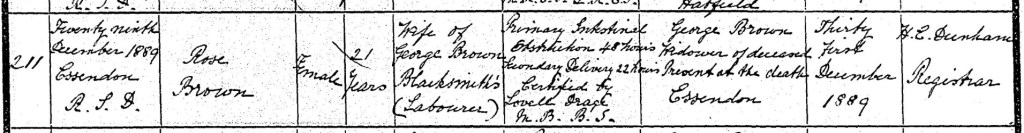 Hatfield
211
Twenty ninth
December 1889
Essendon
R.S.D.
Rose
Brown
Female
21
Years
Wife of
George Brown
Blacksmith's
(Labourer)
Primary Intestinal
Obstruction 48 hours
Secondary Delivery 22 hours
Certified by
Lovell Drage
M.B. B.S.
George Brown
Widower of deceased
Present at the death
Essendon
Thirty
First
December
1889
Registrar